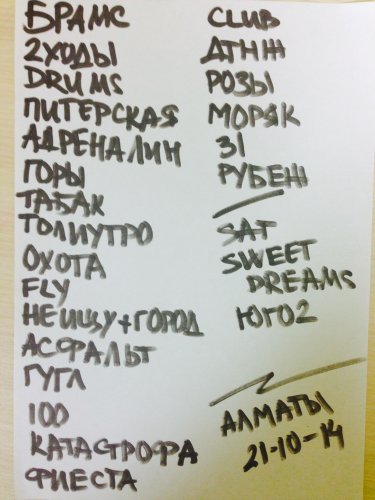 БРАМС
2ХОДЫ
DRUMS
ПИТЕРСКАЯ
АДРЕНАЛИН
ГОРЫ
ТАБАК
ТОЛИУТРО
ОХОТА
FLY
НЕИЩУ+ГОРОД
АСФАЛЬТ
ГУГЛ
100
КАТАСТРОФА
ФИЕСТА
CLUB
ДТНЖ
РОЗЫ
МОРЯК
31
РУБЕЖ
SAT
SWEET
DREAMS
ЮГО2
АЛМАТЫ
21-10-14